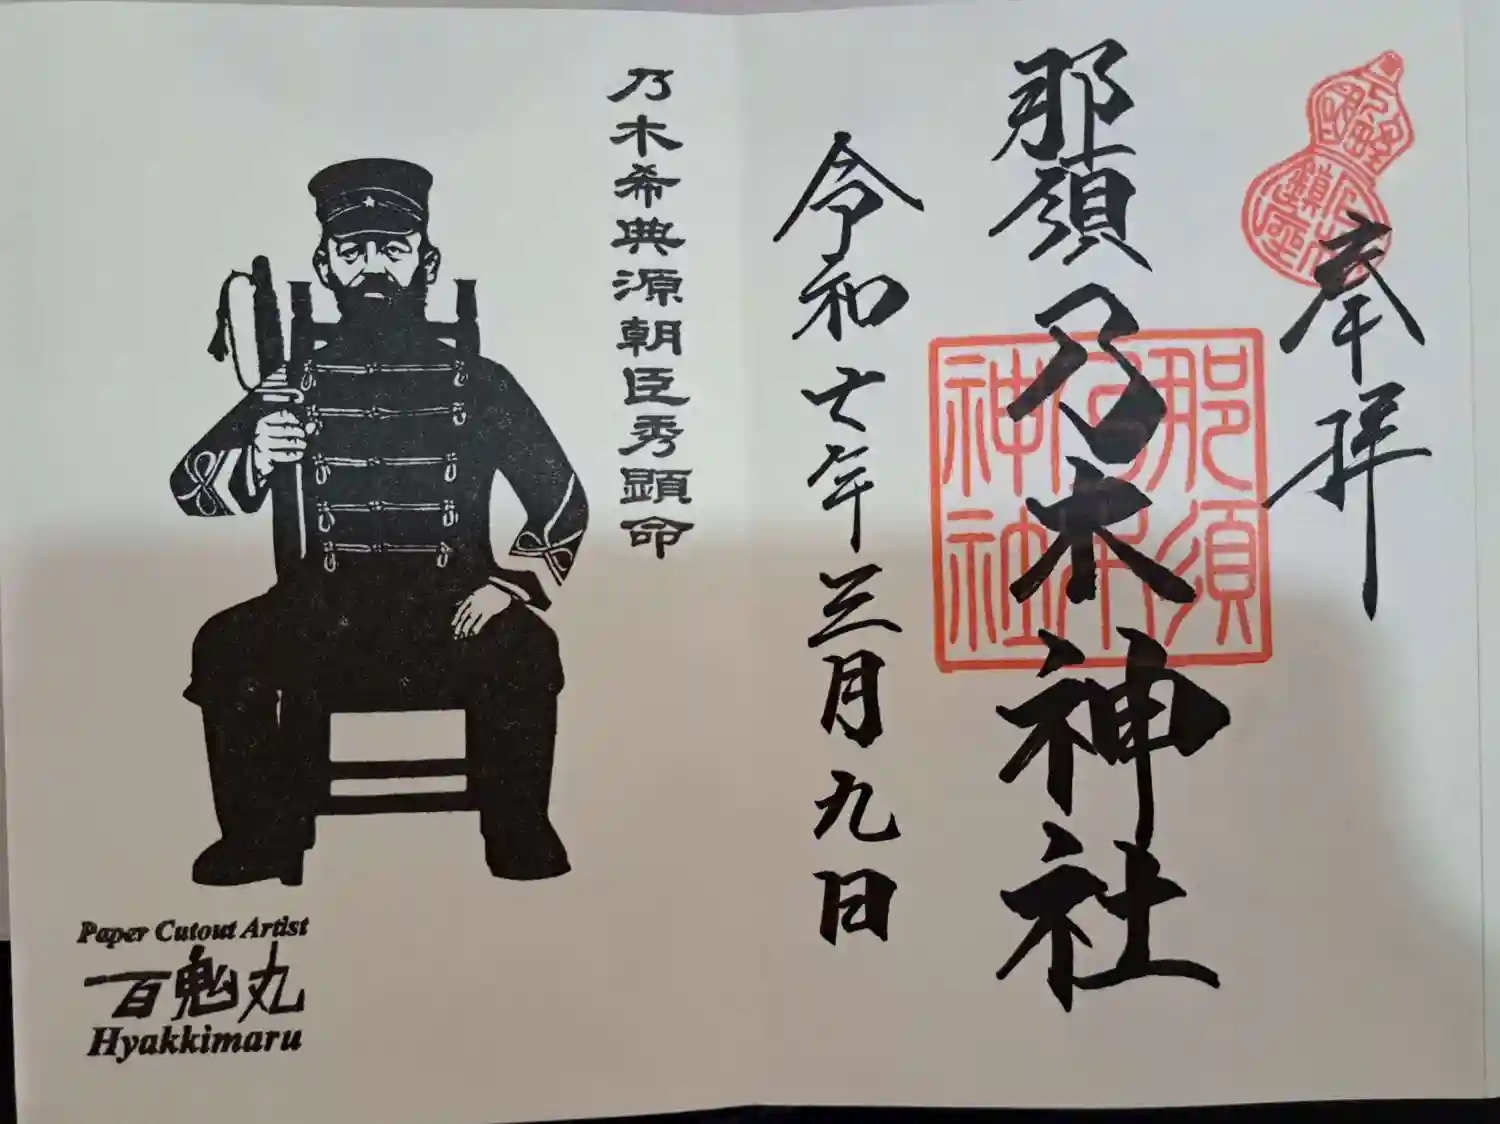 奉拝
那須乃木神社
那須
乃木
神社
令和七年三月九日
乃木希典源朝臣秀顕命
Paper Cutout Artist
百鬼丸
Hyakkimaru